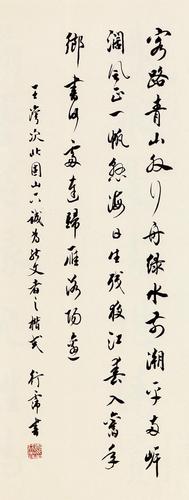 客路青山外行舟綠水前潮平兩岸
闊風正一帆懸海日生殘夜江春入舊年
鄉書何處達歸雁洛陽邊
王灣次北固山下誠為能文者之楷式 行霈書